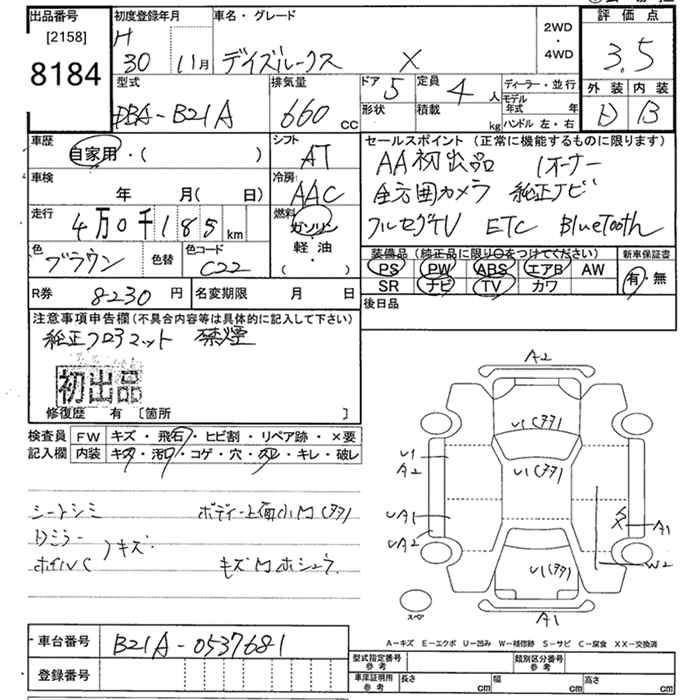 出品番号
[2158]
8184
初度登録年月
H
30 11月
車名・グレード
デイズルークス X
2WD
・
4WD
評価点
3.5
外装 内装
D B
型式
DBA-B21A
排気量
660 cc
ドア 5
形状
定員 4 人
積載 kg
ディーラー・並行
モデル年式 年
ハンドル 左・右
車歴
自家用・( )
シフト
AT
車検
年 月( 日)
冷房
AAC
走行
4万0千185 km
燃料
ガソリン
軽油
( )
色
ブラウン
色替
色コード
C22
R券 8230 円
名変期限 月 日
セールスポイント (正常に機能するものに限ります)
AA初出品 1オーナー
全方囲カメラ 純正ナビ
フルセグTV ETC BlueTooth
装備品(純正品に限り○をつけてください)
PS PW ABS エアB AW
SR ナビ TV カワ
新車保証書
有・無
後日品
注意事項申告欄(不具合内容等は具体的に記入して下さい)
純正フロアマット 禁煙
初出品
修復歴 有 〔箇所 〕
検査員 FW キズ・飛石・ヒビ割・リペア跡・×要
記入欄 内装 キズ・汚レ・コゲ・穴・スレ・キレ・破レ
シートシミ ボディー上面小M(タタ)
Dミラー
ホイルC
キズ
キズMホシュウ
A2
U1(タタ)
U1(タタ)
U1
A2
UA1
UA2
A1
W2
U1(タタ)
A1
スペア
A-キズ E-エクボ U-凹み W-補修跡 S-サビ C-腐食 XX-交換済
車台番号 B21A-0537681
登録番号
型式指定番号 参考
類別区分番号 参考
車庫証明用 参考
長さ cm 幅 cm 高さ cm